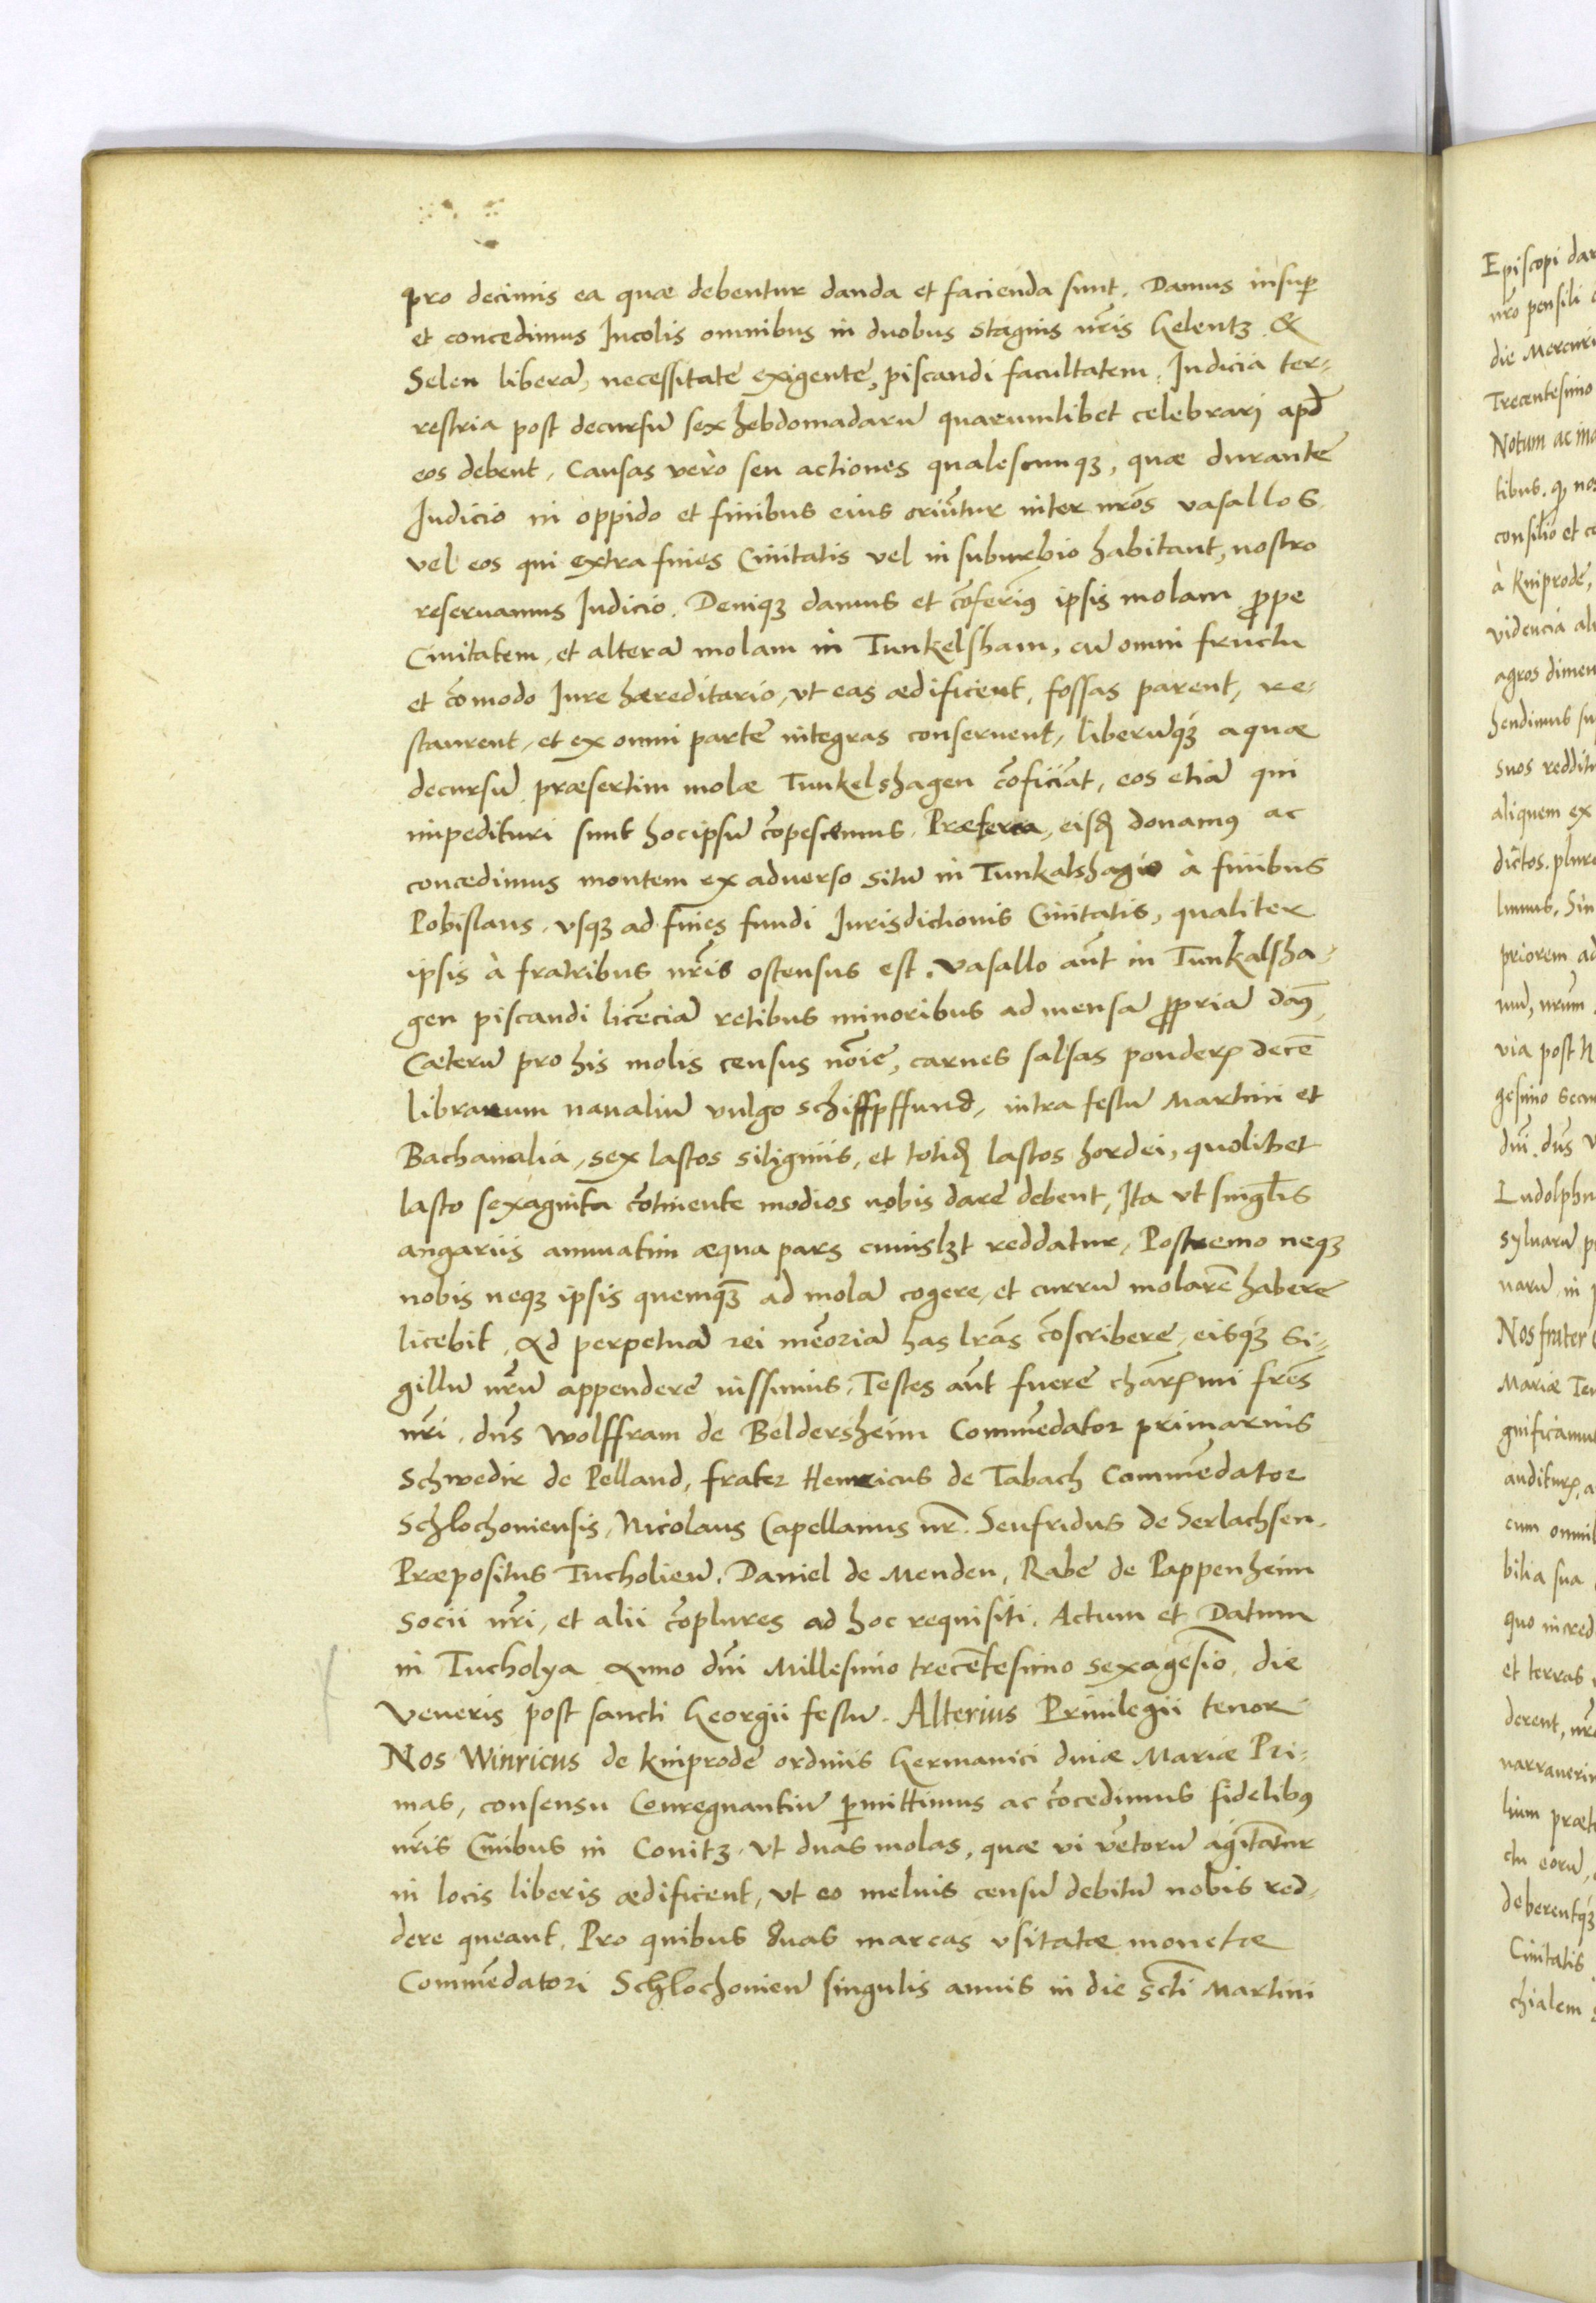 pro decimis ea quæ debentur danda et facienda sunt. Damus insup̱
et concedimus Incolis omnibus in duobus stagnis nr̃is Gelentz &
Selen liberã, necessitate exigente, piscandi facultatem. Judicia ter-
restria post decursũ sex hebdomadarũ quarumlibet celebrari apd̃
eos debent. Causas verò seu actiones qualescunqꝫ, quæ durante
Judicio in oppido et finibus eius oriũtur inter nr̃os vasallos
vel eos qui extra fines Ciuitatis vel in suburbio habitant, nostro
reseruamus Iudicio. Deniqꝫ damus et cõferimꝰ ipsis molam ꝓpe
Ciuitatem, et alterã molam in Tunkelsham, cũ omni fructu
et cõmodo Iure hæreditario, vt eas ædificent, fossas parent, re-
staurent, et ex omni parte integras conseruent, liberũqꝫ aquæ
decursũ præsertim molæ Tunkelshagen cõficiãt, eos etiã qui
impedituri sunt hocipsũ cõpescemus. Præterea, eisđ donamꝰ ac
concedimus montem ex aduerso sitũ in Tunkalshagẽ à finibus
Pobislaus, vsqꝫ ad fines fundi Jurisdictionis Ciuitatis, qualiter
ipsis à fratribus nr̃is ostensus est. Vasallo aũt in Tunkalsha-
gen piscandi licẽciã retibus minoribus ad mensã ꝓpriã damꝰ,
Cæterũ pro his molis census nõie, carnes salsas ponderꝭ decẽ
librarum naualiũ vulgo schiffpffund, intra festũ Martini et
Bachanalia, sex lastos siliginis, et totiđ lastos hordei, quolibet
lasto sexaginta cõtinente modios nobis dare debent, Ita vt singl̃is
angariis annuatim æqua pars cuiuslꝫt reddatur, Postremo neqꝫ
nobis neqꝫ ipsis quemqꝫ̃ ad molã cogere, et currũ molarẽ habere
licebit. Ad perpetuã rei mẽoriã has lr̃as cõscribere, eisqꝫ si-
gillũ nr̃ũ appendere iussimus. Testes aũt fuere charꝭmi fr̃es
nr̃i. dñs Wolffram de Beldersheim Commẽdator primarius
Schwedir de Pelland, frater Henricus de Tabach Commẽdator
Schlochoniensis, Nicolaus Capellanus nr̃. Seufridus de Serlachsen.
Præpositus Tucholieñ. Daniel de Menden, Rabe de Pappenheim
socii nr̃i, et alii cõplures ad hoc requisiti. Actum et Datum
in Tucholya Anno dñi Millesimo trecẽtesimo sexagesio, die
Veneris post sancti Georgii festũ. Alterius Priuilegii tenor
Nos Winricus de Kniprode ordinis Germanici diuæ Mariæ Pri-
mas, consensu Conregnantiũ p̱mittimus ac cõcedimus fidelibꝰ
nr̃is Ciuibus in Conitz, vt duas molas, quæ vi vẽtorũ agitãtur
in locis liberis ædificent, vt eo melius censũ debitũ nobis red-
dere queant. Pro quibus duas marcas vsitatæ monetæ
Commẽdatori Schlochonieñ singulis annis in die sc̃ti Martini
Episcopi
nr̃o pensili
die Mercuri
Trecentesimo
Notum ac
tibus. qꝫ
consilio et
à Kniprode,
videncia
agros
hendimus
suos
aliquem ex
dictos.
limus. Sin
priorem ad
nũ, nrũm
via post
gesimo
dñi. dñs
Ludolphu
syluarũ
narũ, in
Nos frater
Mariæ Teu
gnificamu
auditurꝭ,
cum omni
bilia sua
quo in
et terras
derent, nr̃
narrauerin
lium præt
ctu eorũ,
deberentqꝫ
Ciuitatis
chialem